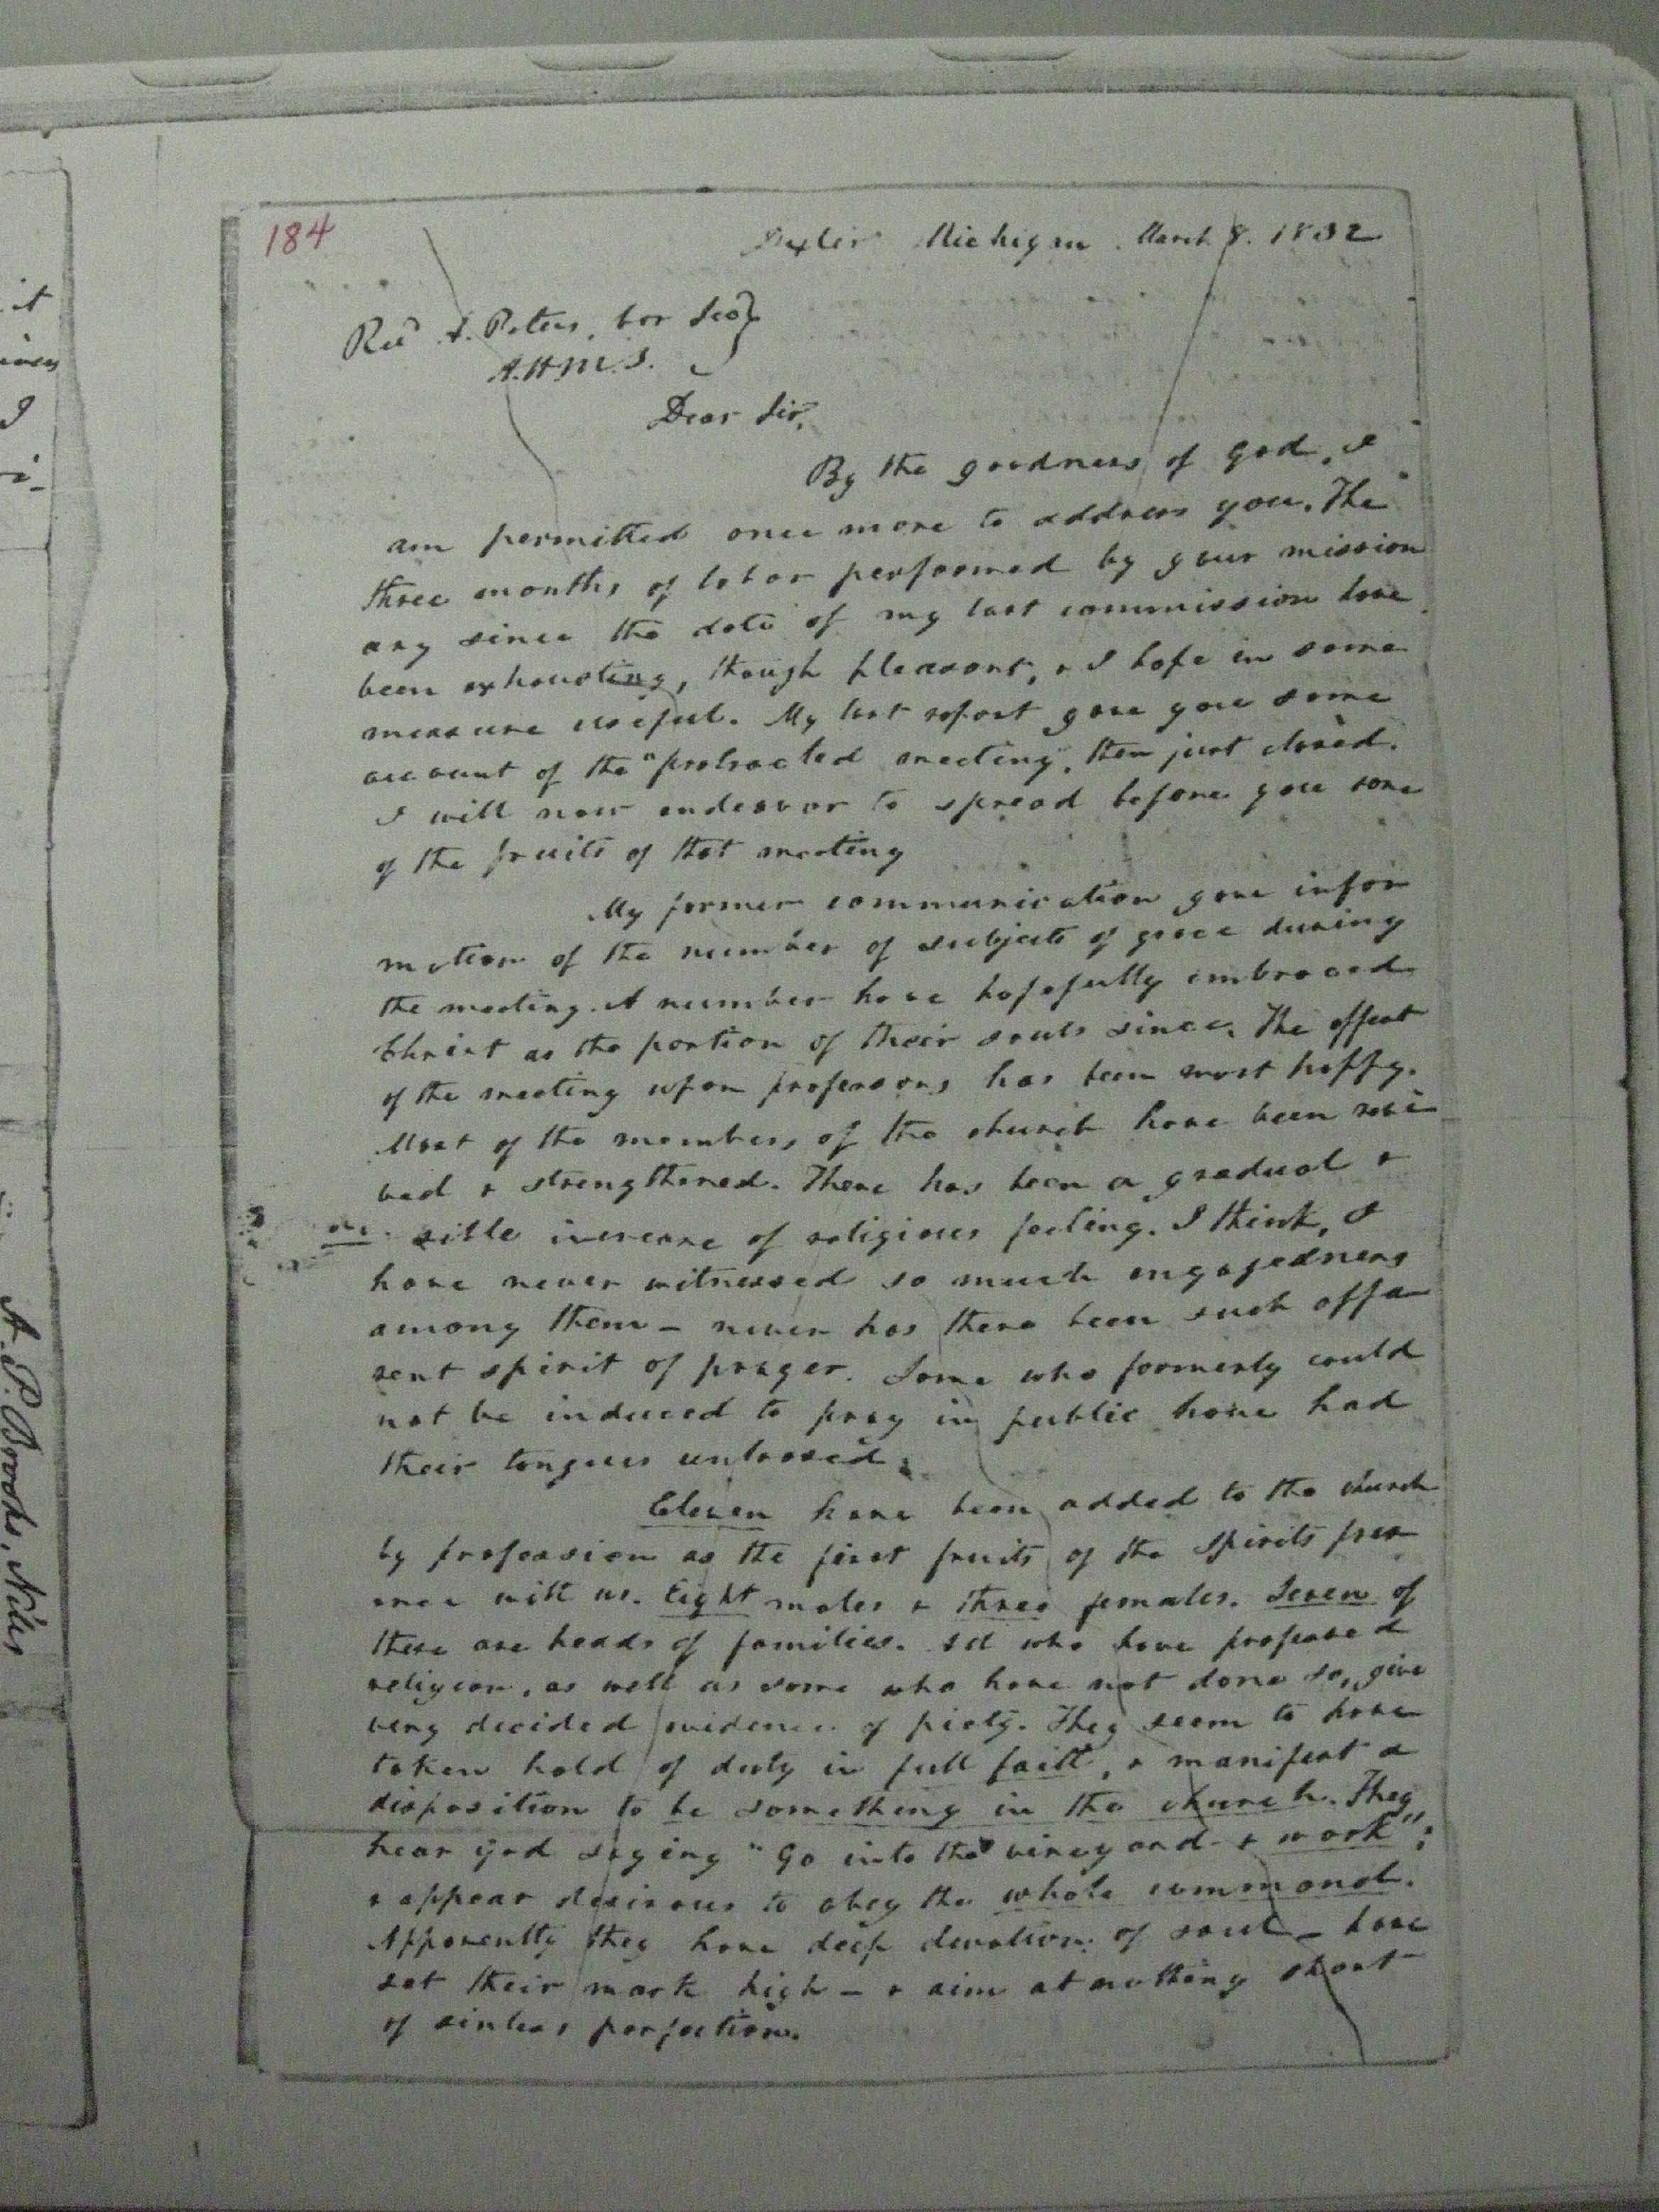 184
Dexter Michigan. March 8. 1832
Revd A. Peters, Cor Secy
A.H.M.S.
Dear Sir,
By the goodness of God, I
am permitted once more to address you. The
three months of labor performed by your mission
ary since the date of my last commission have
been exhausting, though pleasant, & I hope in some
measure useful. My last report gave you some
account of the "protracted meeting, then just closed.
I will now endeavor to spread before you some
of the fruits of that meeting
My former communication gave infor
mation of the number of subjects of grace during
the meeting. A number have hopefully embraced
Christ as the portion of their souls since. The effect
of the meeting upon professors has been most happy.
Most of the members of the church have been revi
ved & strengthened. There has been a gradual &
sible increase of religious feeling. I think, I
have never witnessed so much engagedness
among them - never has there been such appa
rent spirit of prayer. Some who formerly could
not be induced to pray in public have had
their tongues unloosed.
Eleven have been added to the church
by profession as the first fruits of the Spirits pres
ence with us. Eight males & three females. Seven of
these are heads of families. All who have professed
religion, as well as some who have not done so, give
very decided evidence of piety. They seem to have
taken hold of duty in full faith, & manifest a
disposition to be something in the church. They
hear God saying "Go into the vineyard & work";
& appear desirous to obey the whole command.
Apparently they have deep devotion of soul - have
set their mark high - & aim at nothing short
of sinless perfection.
it
I
A. P. Brooks, Niles